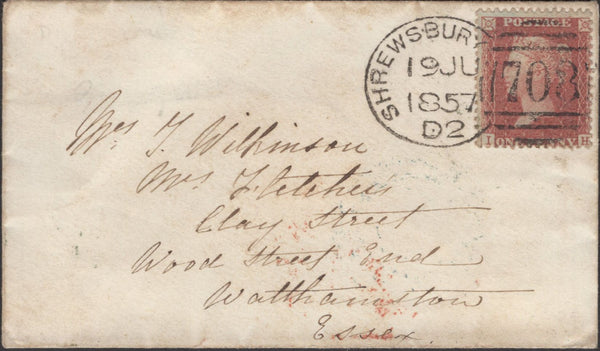 SHREWSBURY
19 JU
1857
D2
POSTAGE
708
I ONE PENNY H
Mrs T. Wilkinson
Mrs Fletcher's
Clay Street
Wood Street End
Walthamston
Essex.